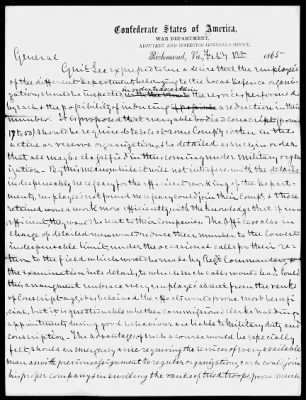 Confederate States of America,
WAR DEPARTMENT,
ADJUTANT AND INSPECTOR GENERAL'S OFFICE,
Richmond, Va. Feby 1865
General
Genl Lee expressed to me a desire that the employees
of the different Departments belonging to the Local Defence organi-
zations, should be inspected in order to ascertain the services performed
by each & the possibility of inducing a reduction in their
number. It is proposed that every able bodied conscript (from
17 to 50) should be required to be borne on Company rolls in the
active or reserve organizations, & be detailed as usual in order
that all may be classified in their coming under military organi-
zation. By this means while it will not interfere with the details
indispensably necessary for the efficient working of the Depart-
ments, employees not proved necessary could join their Comds & those
retained would work more efficiently with the knowledge that if not
efficient they would be sent to their Companies. The officers also in
charge of detailed men would reduce their number to the lowest
indispensable limit, under the occasional calls for their re-
turn to the field which would be made by Regtl Commanders &
the examination into details, to which such calls would lead. Could
this arrangement embrace every employee absent from the ranks
of Conscript age, it is believed the effect would prove most benefi-
cial, but it is questionable whether commissioned clerks holding
appointments during good behaviour are liable to Military duty and
conscription. The advantages of such a course would be specially
felt, should an emergency arise requiring the services of every available
man, as with previous assignment to regular organizations, each could join
his proper company, thus swelling the ranks of tried troops, prove much